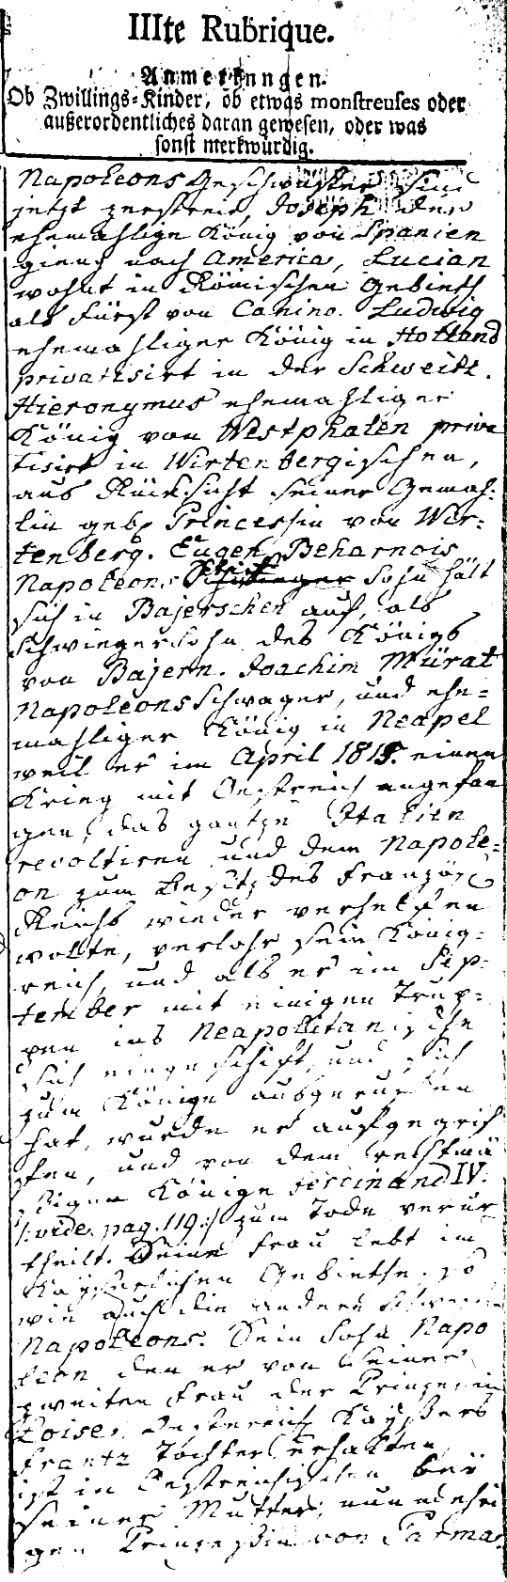 IIIte Rubrique.
Anmerkungen.
Ob Zwillings-Kinder, ob etwas monstreuses oder
außerordentliches daran gewesen, oder was
sonst merkwürdig.
Napoleons Geschwister sind
jetzt zerstreut, Joseph der
ehemahlige König von Spanien
gieng nach America, Lucian
wohnt in Römischen Gebieth
als Fürst von Canino. Ludwig
ehemahliger König in Holland
privatisirt in der Schweitz.
Hieronymus ehemahliger
König von Westphalen priva
tisirt in Wirtenbergischen,
aus Rücksicht seiner Gemah-
lin geb. Princessin von Wir-
tenberg. Eugen Beharnois
Napoleons Stief Sohn hält
sich in Bajerschen auf, als
Schwiegersohn des Königs
von Bajern. Joachim Mürat
Napoleons Schwager, und ehe-
mahliger König in Neapel
weil er im April 1815. einen
Krieg mit Oestreich angefan
gen, das gantze Italien
revoltiren und dem Napole-
on zum Besitz des Französ.
Reichs wieder verhelfen
wollte, verlohr sein König-
reich, und als er im Sep-
tember mit einigen Trup-
pen ins Neapolitanische
sich eingeschift, und sich
zum Könige ausgerufen
hat, wurde er aufgegrif
fen, und von dem rechtmä
ßigen Könige Ferdinand IV.
/:vide pag. 119:/ zum Tode verur
theilt. Seine Frau lebt im
Kayserlichen Gebiethe, so
wie auch die andere
Napoleons. Sein Sohn Napo
leon den er von seiner
zweiten Frau der Prinzessin
Loise, Kaysers
Frantz Tochter erhalten
ist in Oestreichischen bei
seiner Mutter, nunmehri
gen Prinzeßin von Parma.